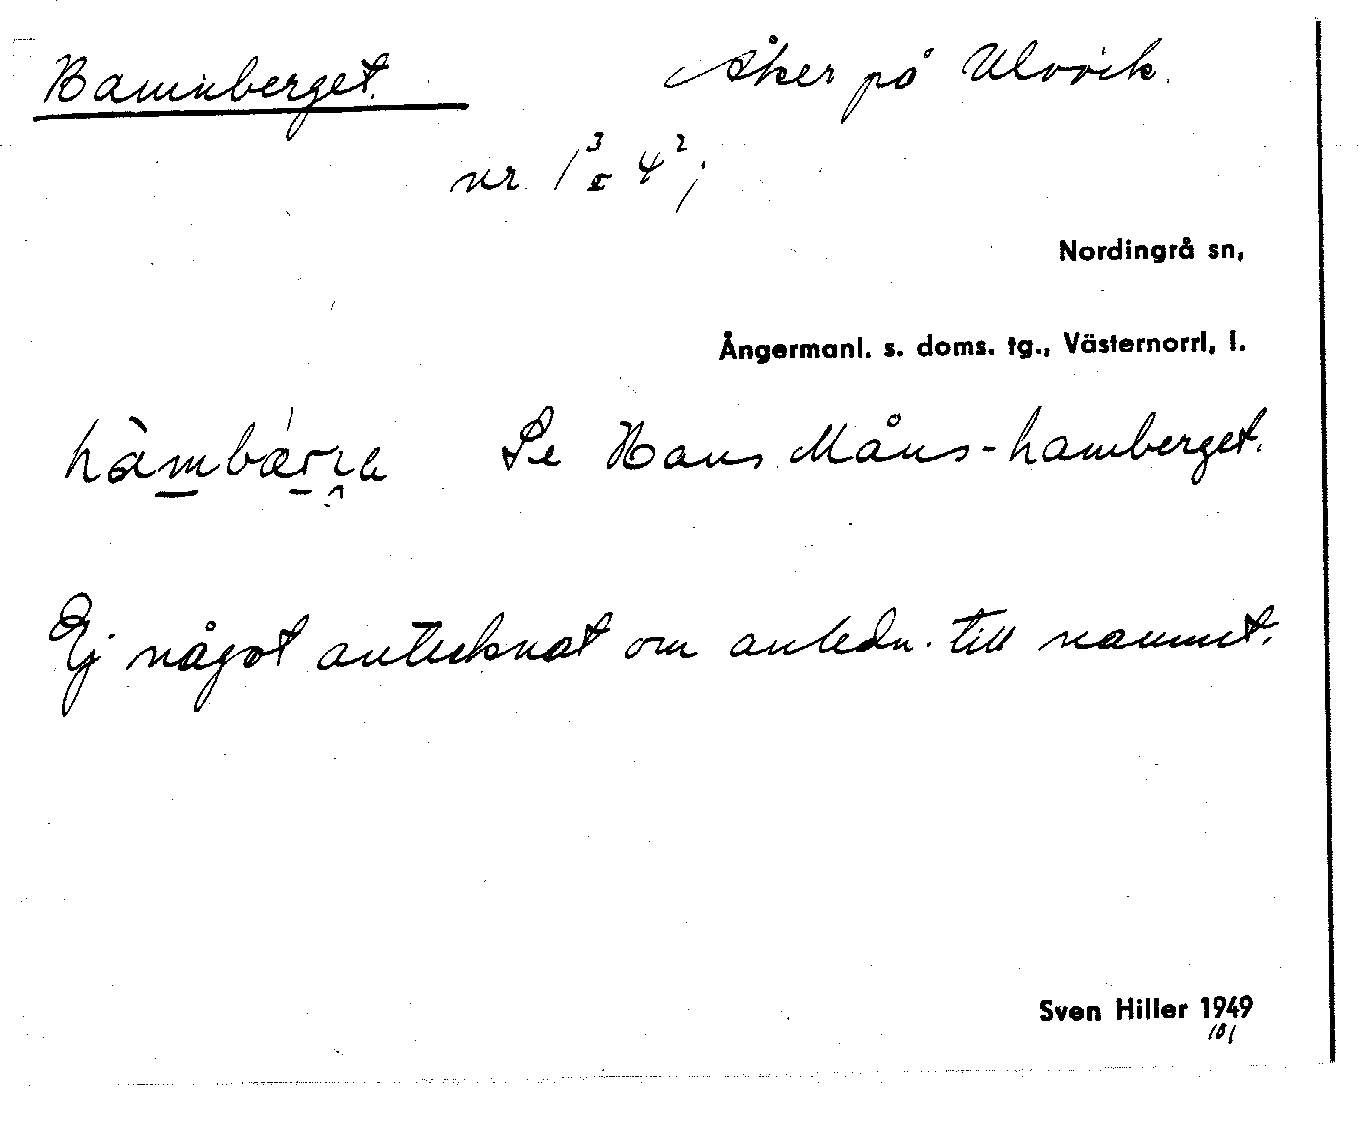 Hamnberget. Åker på Ulvvik.
nr 1³ o 4²;
Nordingrå sn,
Ångermanl. s. doms. tg., Västernorrl. l.
Se Hans Måns-hamberget.
Ej något antecknat om anledn. till namnet.
Sven Hiller 1949
101